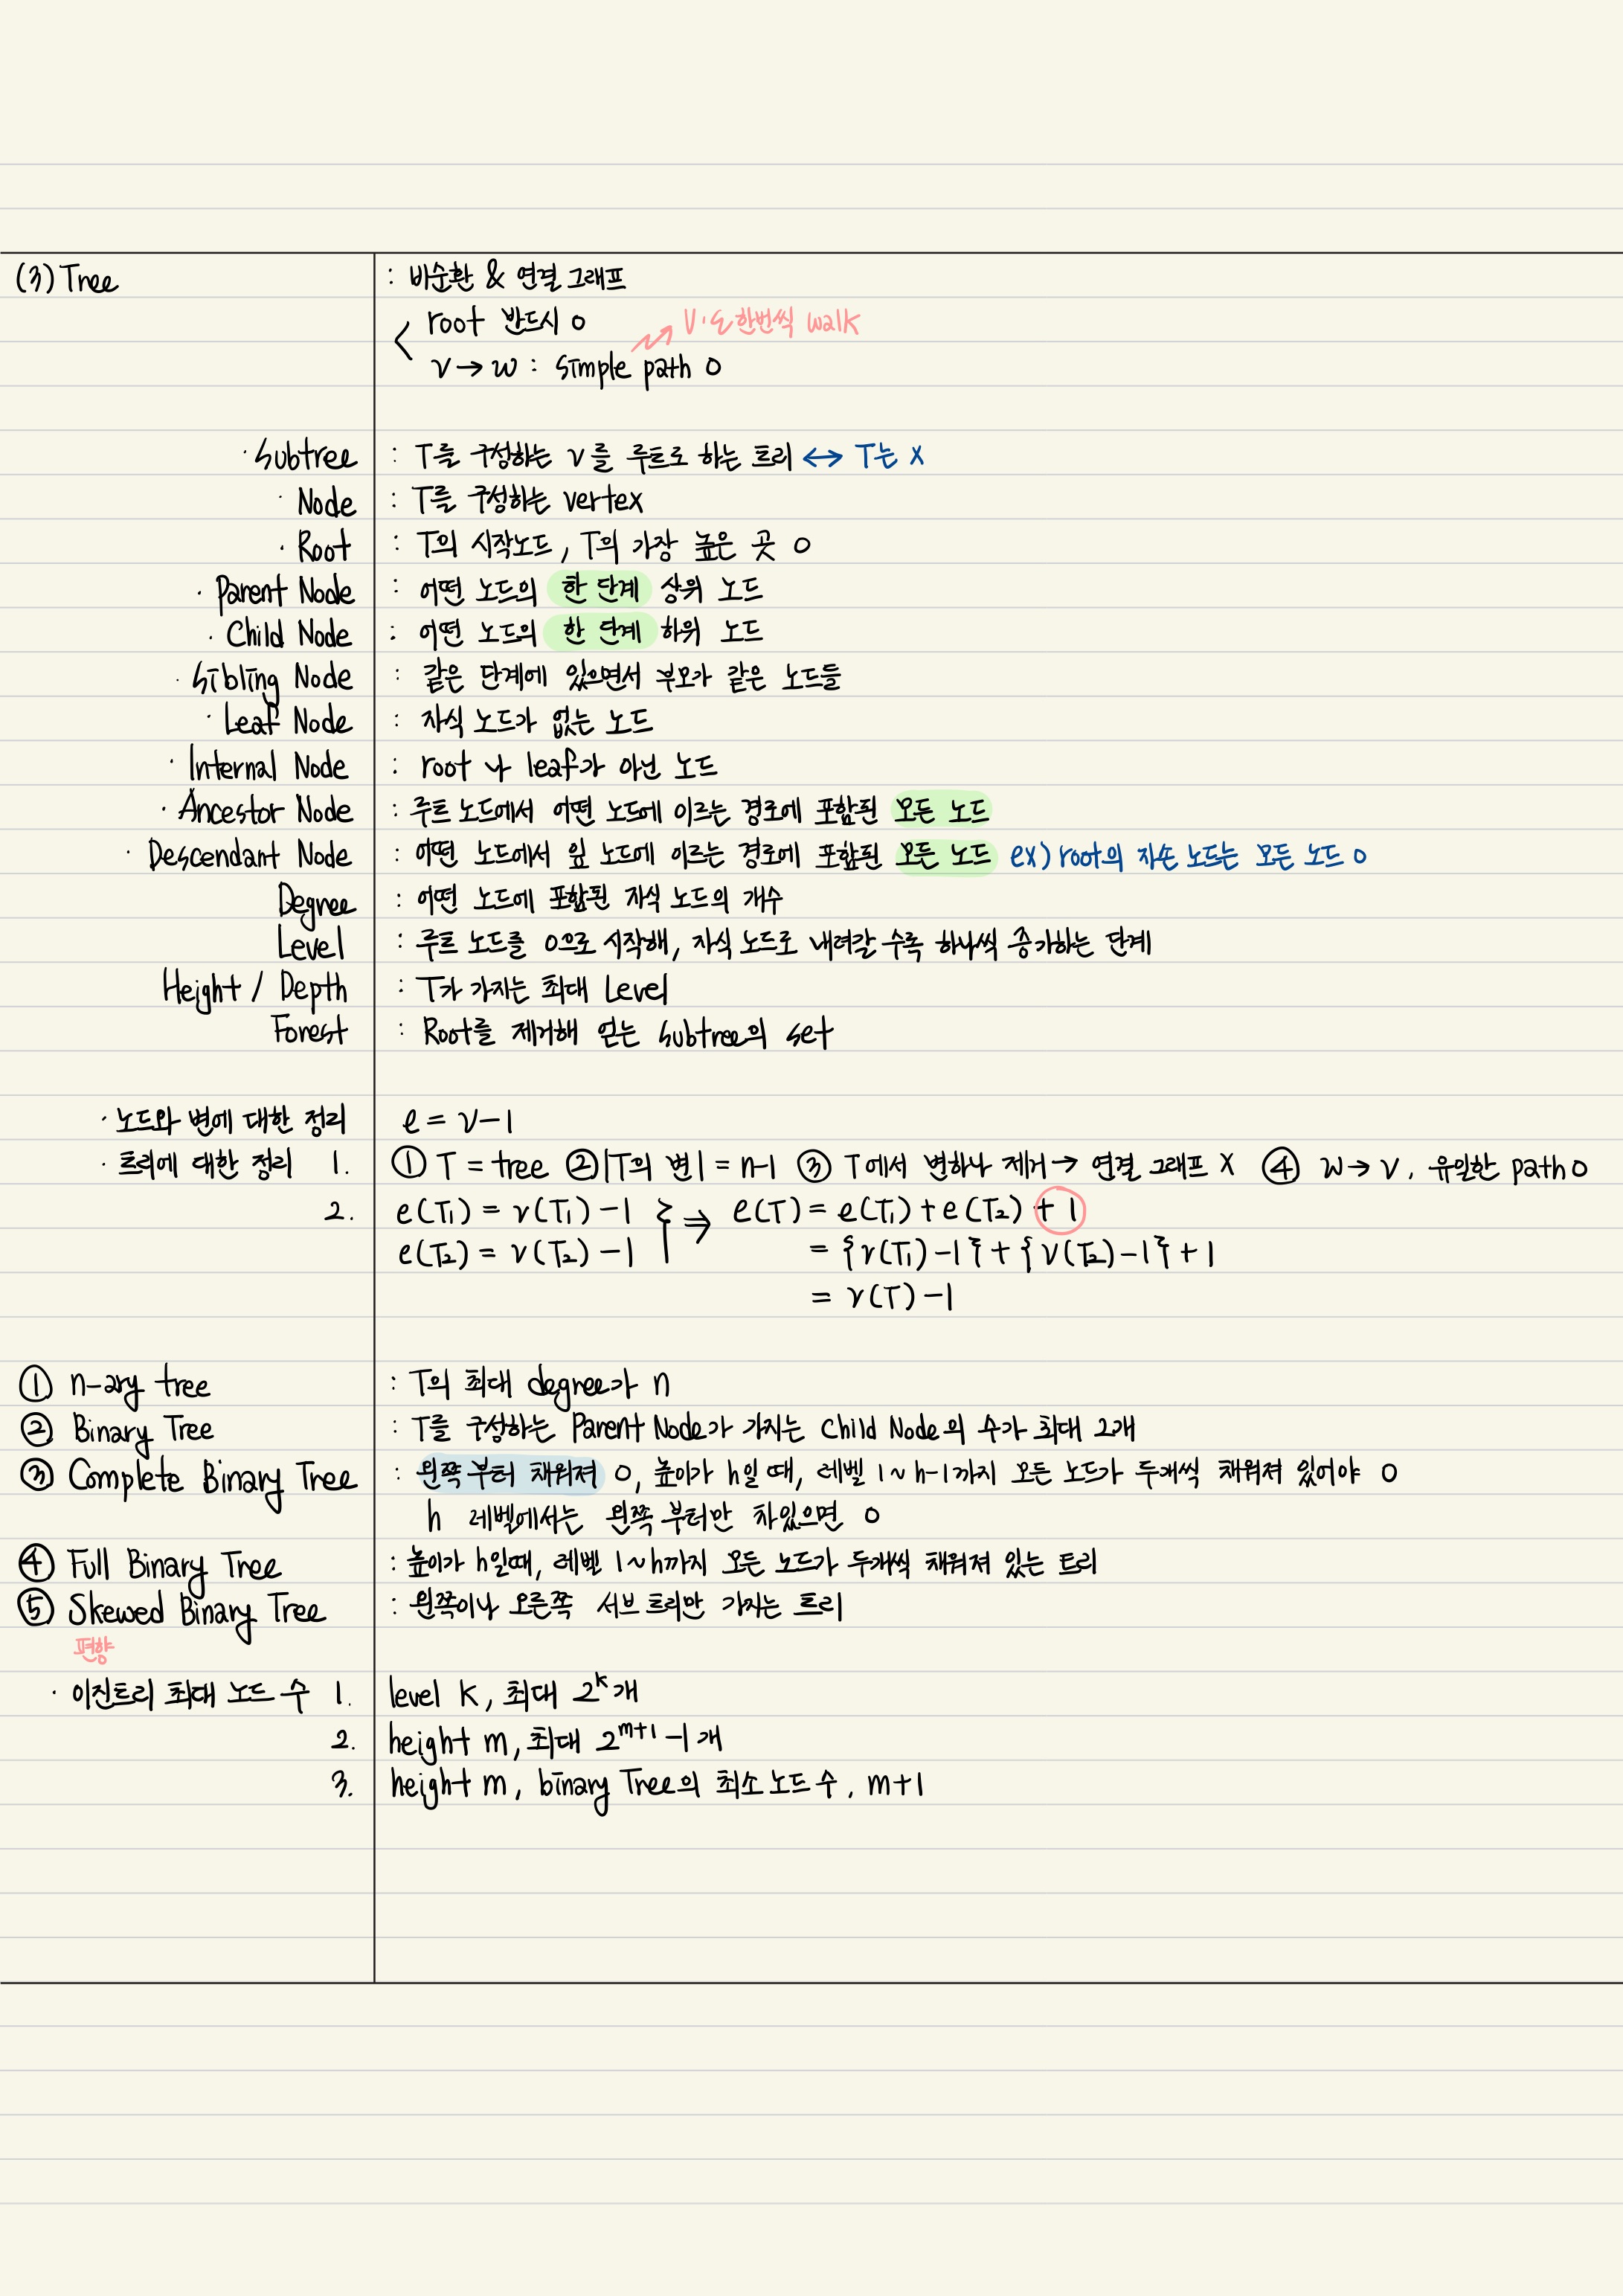 (3) Tree : 비순환 & 연결그래프
root 반드시 O
V·E 한번씩 walk
v → w : simple path O
· Subtree : T를 구성하는 v를 루트로 하는 트리 ↔ T는 X
· Node : T를 구성하는 vertex
· Root : T의 시작노드, T의 가장 높은 곳 O
· Parent Node : 어떤 노드의 한 단계 상위 노드
· Child Node : 어떤 노드의 한 단계 하위 노드
· Sibling Node : 같은 단계에 있으면서 부모가 같은 노드들
· Leaf Node : 자식 노드가 없는 노드
· Internal Node : root 나 leaf가 아닌 노드
· Ancestor Node : 루트 노드에서 어떤 노드에 이르는 경로에 포함된 모든 노드
· Descendant Node : 어떤 노드에서 잎 노드에 이르는 경로에 포함된 모든 노드 ex) root의 자손 노드는 모든 노드 O
Degree : 어떤 노드에 포함된 자식 노드의 개수
Level : 루트 노드를 0으로 시작해, 자식 노드로 내려갈 수록 하나씩 증가하는 단계
Height / Depth : T가 가지는 최대 Level
Forest : Root를 제거해 얻는 subtree의 set
· 노드와 변에 대한 정리 e = v-1
· 트리에 대한 정리 1. ① T = tree ② |T의 변| = n-1 ③ T에서 변하나 제거 → 연결 그래프 X ④ w → v, 유일한 path O
2. e(T₁) = v(T₁) -1 } ⇒ e(T) = e(T₁) + e(T₂) + 1
e(T₂) = v(T₂) -1 = {v(T₁) -1} + {v(T₂) -1} + 1
= v(T) -1
① n-ary tree : T의 최대 degree가 n
② Binary Tree : T를 구성하는 Parent Node가 가지는 Child Node의 수가 최대 2개
③ Complete Binary Tree : 왼쪽 부터 채워져 O, 높이가 h일 때, 레벨 1~h-1까지 모든 노드가 두개씩 채워져 있어야 O
h 레벨에서는 왼쪽 부터만 차있으면 O
④ Full Binary Tree : 높이가 h일때, 레벨 1~h까지 모든 노드가 두개씩 채워져 있는 트리
⑤ Skewed Binary Tree : 왼쪽이나 오른쪽 서브 트리만 가지는 트리
편향
· 이진트리 최대 노드 수 1. level k, 최대 2ᵏ개
2. height m, 최대 2ᵐ⁺¹ -1 개
3. height m, binary Tree의 최소 노드 수, m+1